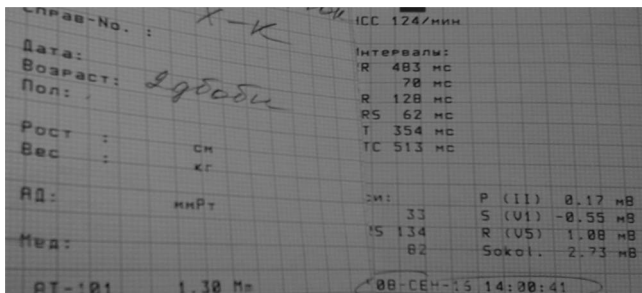 Справ-No. :
X-K
Дата:
Возраст:
Пол:
Рост : см
Вес : кг
АД: ммРт
Мед:
АТ-101 1.30 Mm
ЧСС 124/мин
Интервалы:
RR 483 мс
70 мс
R 128 мс
RS 62 мс
T 354 мс
TC 513 мс
си:
33
S 134
82
P (II) 0.17 мВ
S (V1) -0.55 мВ
R (V5) 1.08 мВ
Sokol. 2.73 мВ
08-СЕН-15 14:00:41